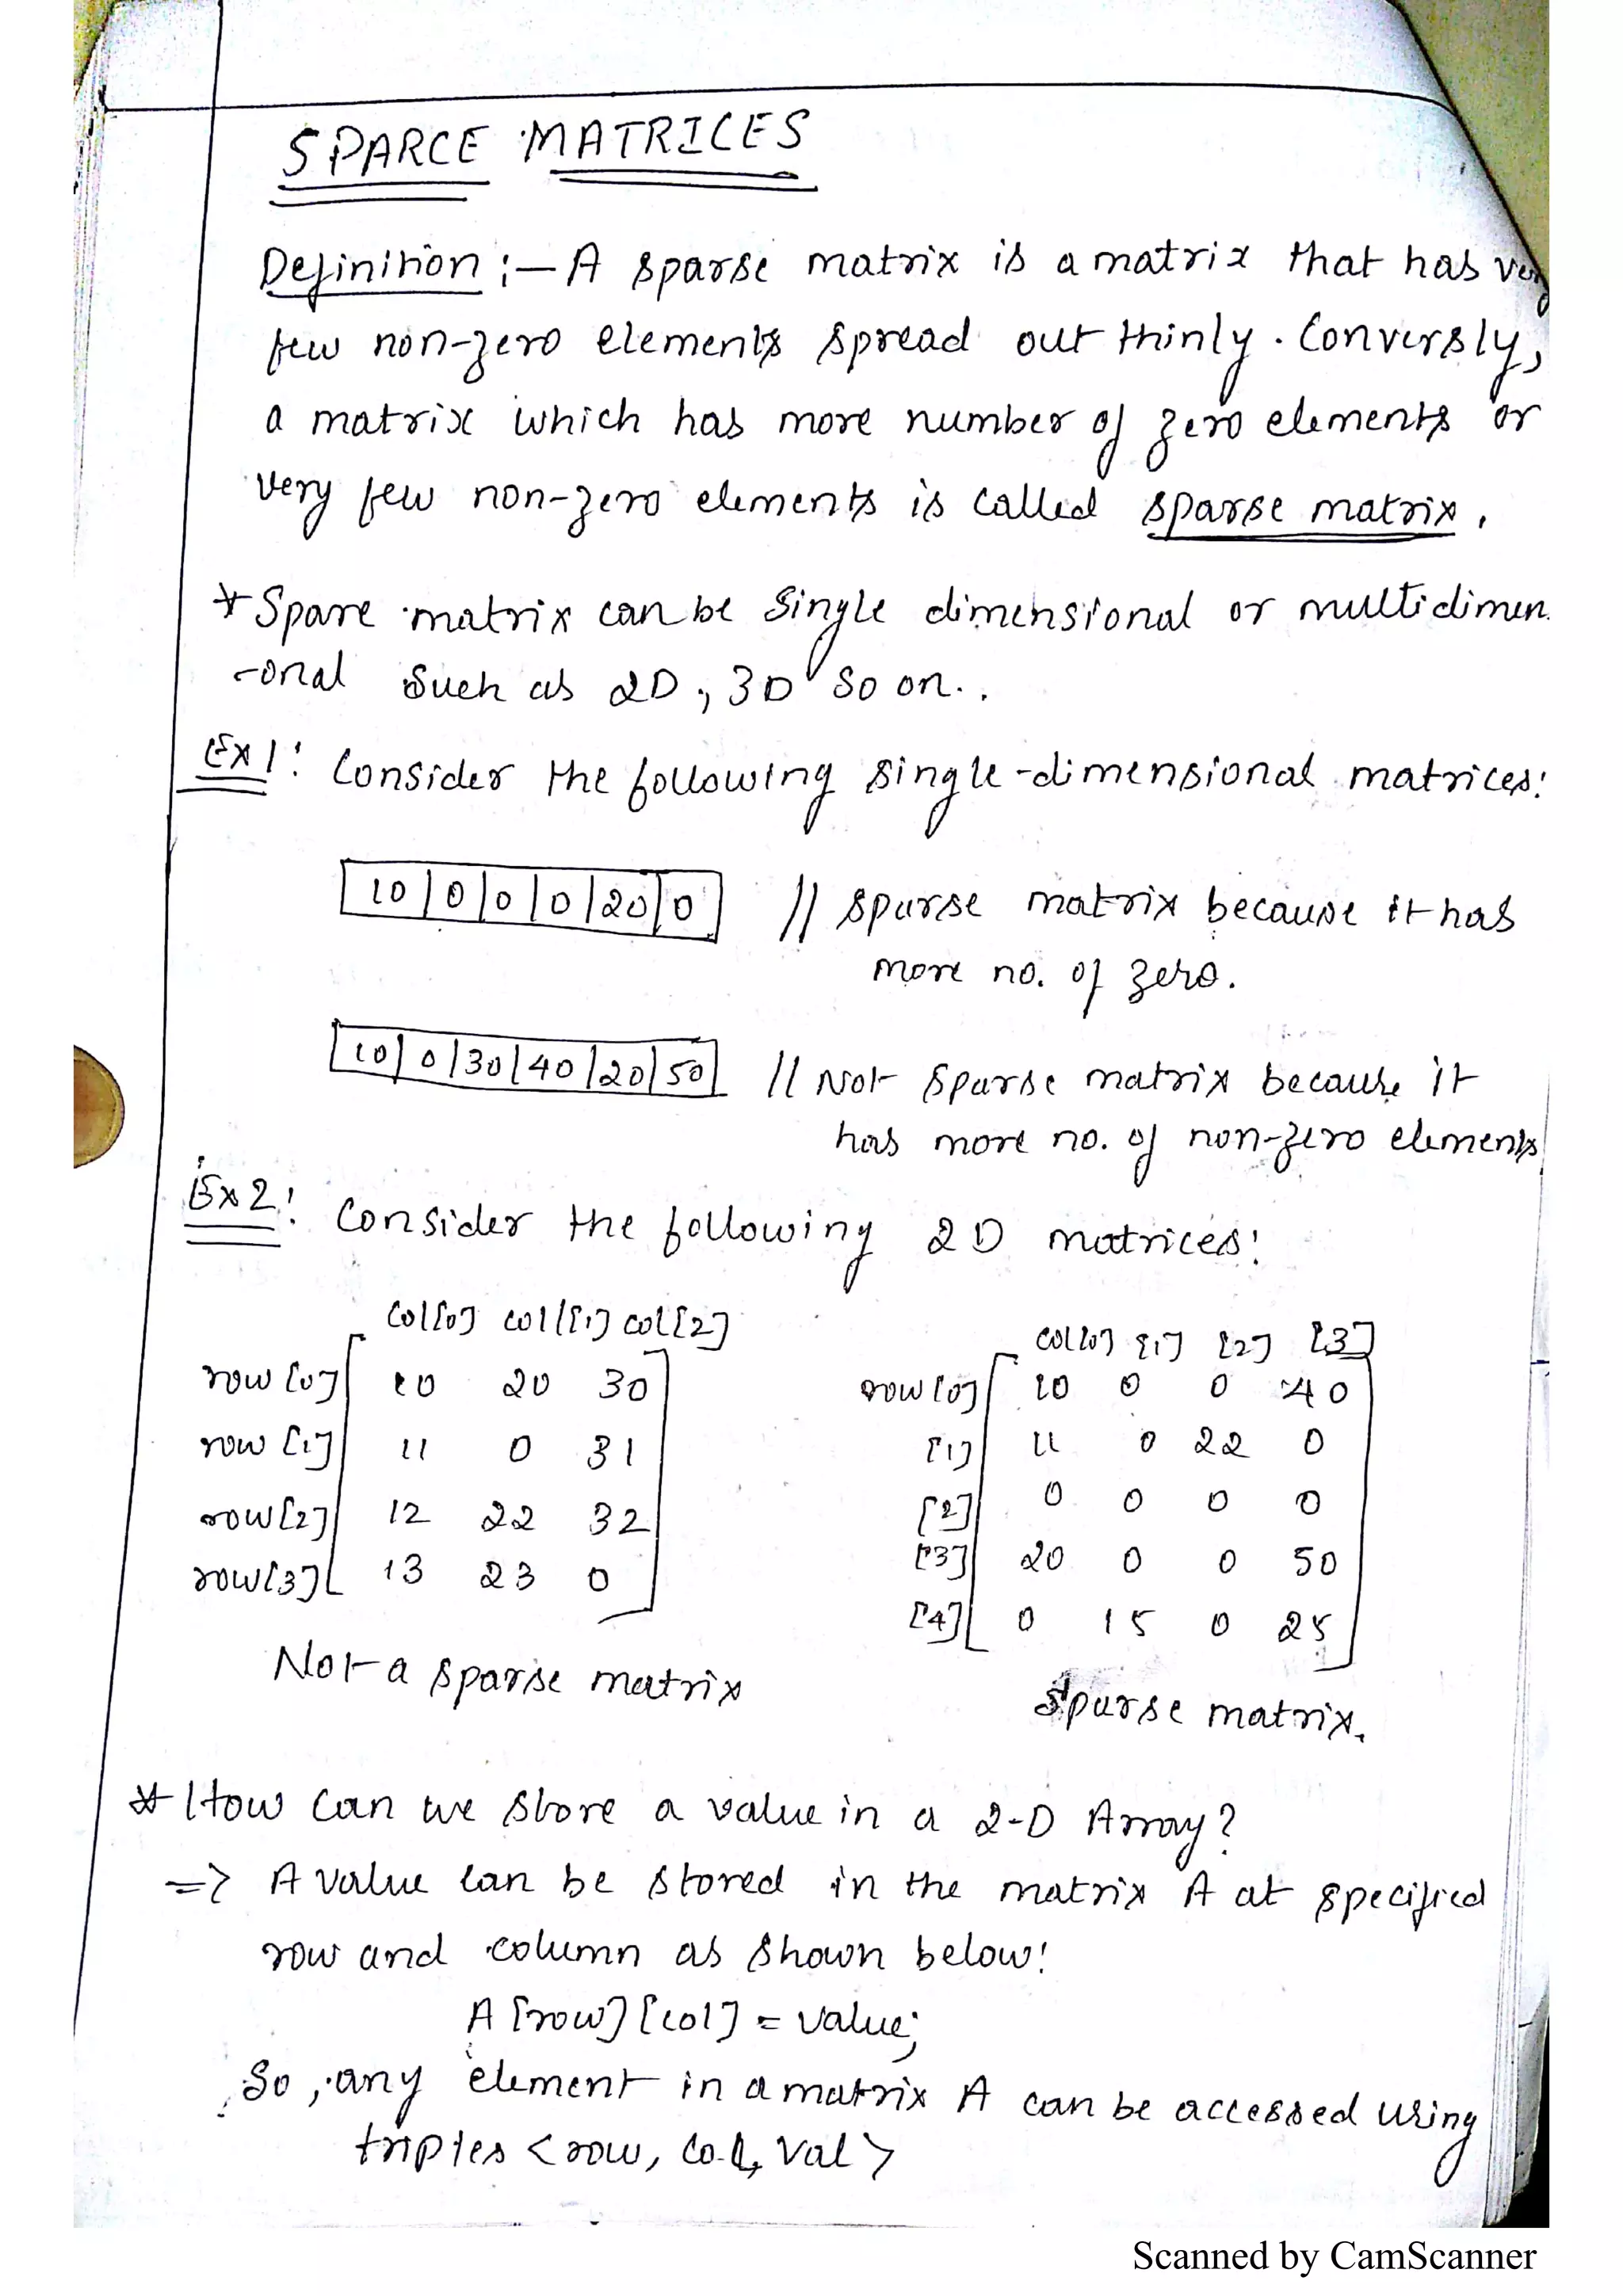 SPARCE MATRICES
Definition :- A sparse matrix is a matrix that has very
few non-zero elements spread out thinly. Conversly,
a matrix which has more number of zero elements or
very few non-zero elements is called sparse matrix.
* Sparse matrix can be Single dimensional or multidimen
-onal such as 2D, 3D so on..
Ex1: Consider the following single-dimensional matrices:
10 0 0 0 20 0 // sparse matrix because it has
more no. of zero.
10 0 30 40 20 50 // Not sparse matrix because it
has more no. of non-zero elements
Ex2: Consider the following 2D matrices:
col[0] col[1] col[2]
row[0] 10 20 30
row[1] 11 0 31
row[2] 12 22 32
row[3] 13 23 0
Not a sparse matrix
col[0] [1] [2] [3]
row[0] 10 0 0 40
[1] 11 0 22 0
[2] 0 0 0 0
[3] 20 0 0 50
[4] 0 15 0 25
Sparse matrix.
* How can we store a value in a 2-D Array?
=> A value can be stored in the matrix A at specified
row and column as shown below:
A[row][col] = value;
So, any element in a matrix A can be accessed using
triples <row, col, val>
Scanned by CamScanner